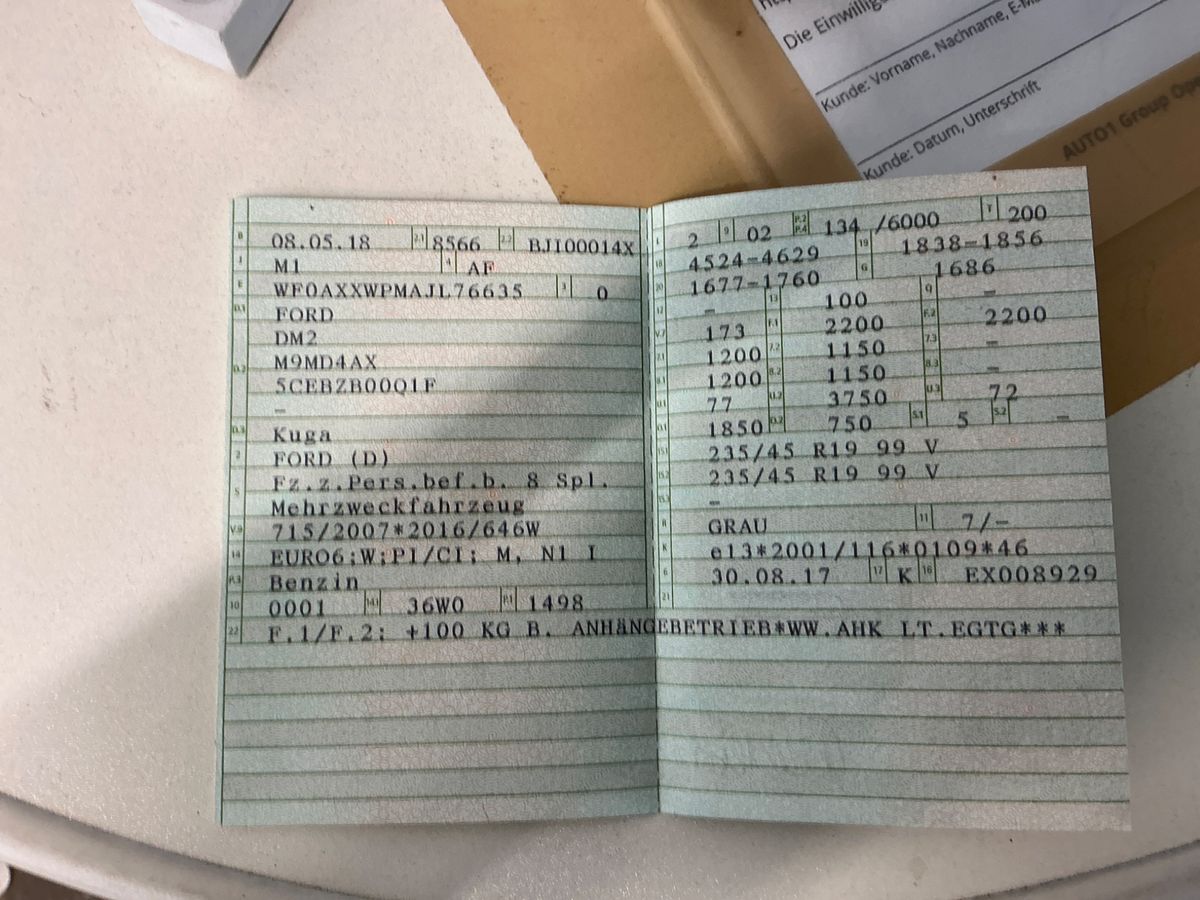 Die Einwillig
Kunde: Vorname, Nachname, E-Ma
Kunde: Datum, Unterschrift
AUTO1 Group Ope
B 08.05.18 2.1 8566 2.2 BJI00014X
J M1 4 AF
E WF0AXXWPMAJL76635 3 0
D.1 FORD
DM2
D.2 M9MD4AX
5CEBZB00Q1F
–
D.3 Kuga
2 FORD (D)
5 Fz.z.Pers.bef.b. 8 Spl.
Mehrzweckfahrzeug
V.9 715/2007*2016/646W
14 EURO6;W;PI/CI; M, N1 I
P.3 Benzin
10 0001 14.1 36W0 P.1 1498
22 F.1/F.2: +100 KG B. ANHÄNGEBETRIEB*WW.AHK LT.EGTG***
L 2 9 02 P.2 P.4 134 /6000 T 200
18 4524-4629 19 1838-1856
20 1677-1760 G 1686
12 – 13 100 Q –
V.7 173 F.1 2200 F.2 2200
7.1 1200 7.2 1150 7.3 –
8.1 1200 8.2 1150 8.3 –
U.1 77 U.2 3750 U.3 72
O.1 1850 O.2 750 S.1 5 S.2 –
15.1 235/45 R19 99 V
15.2 235/45 R19 99 V
15.3 –
R GRAU 11 7/–
K e13*2001/116*0109*46
6 30.08.17 17 K 16 EX008929
21